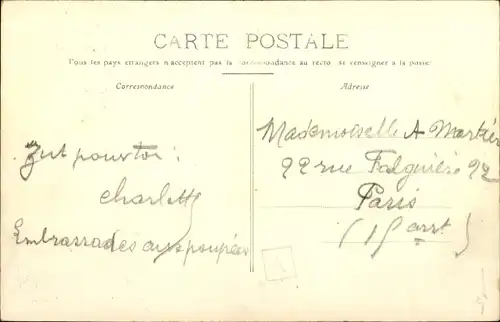 CARTE POSTALE
Tous les pays étrangers n'acceptent pas la correspondance au recto, se renseigner à la poste
Correspondance
Adresse
Zut pour toi :
Charlotte
Embrassades aux poupées
Mademoiselle A
22 rue Falguière 22
Paris
(15 arrt)